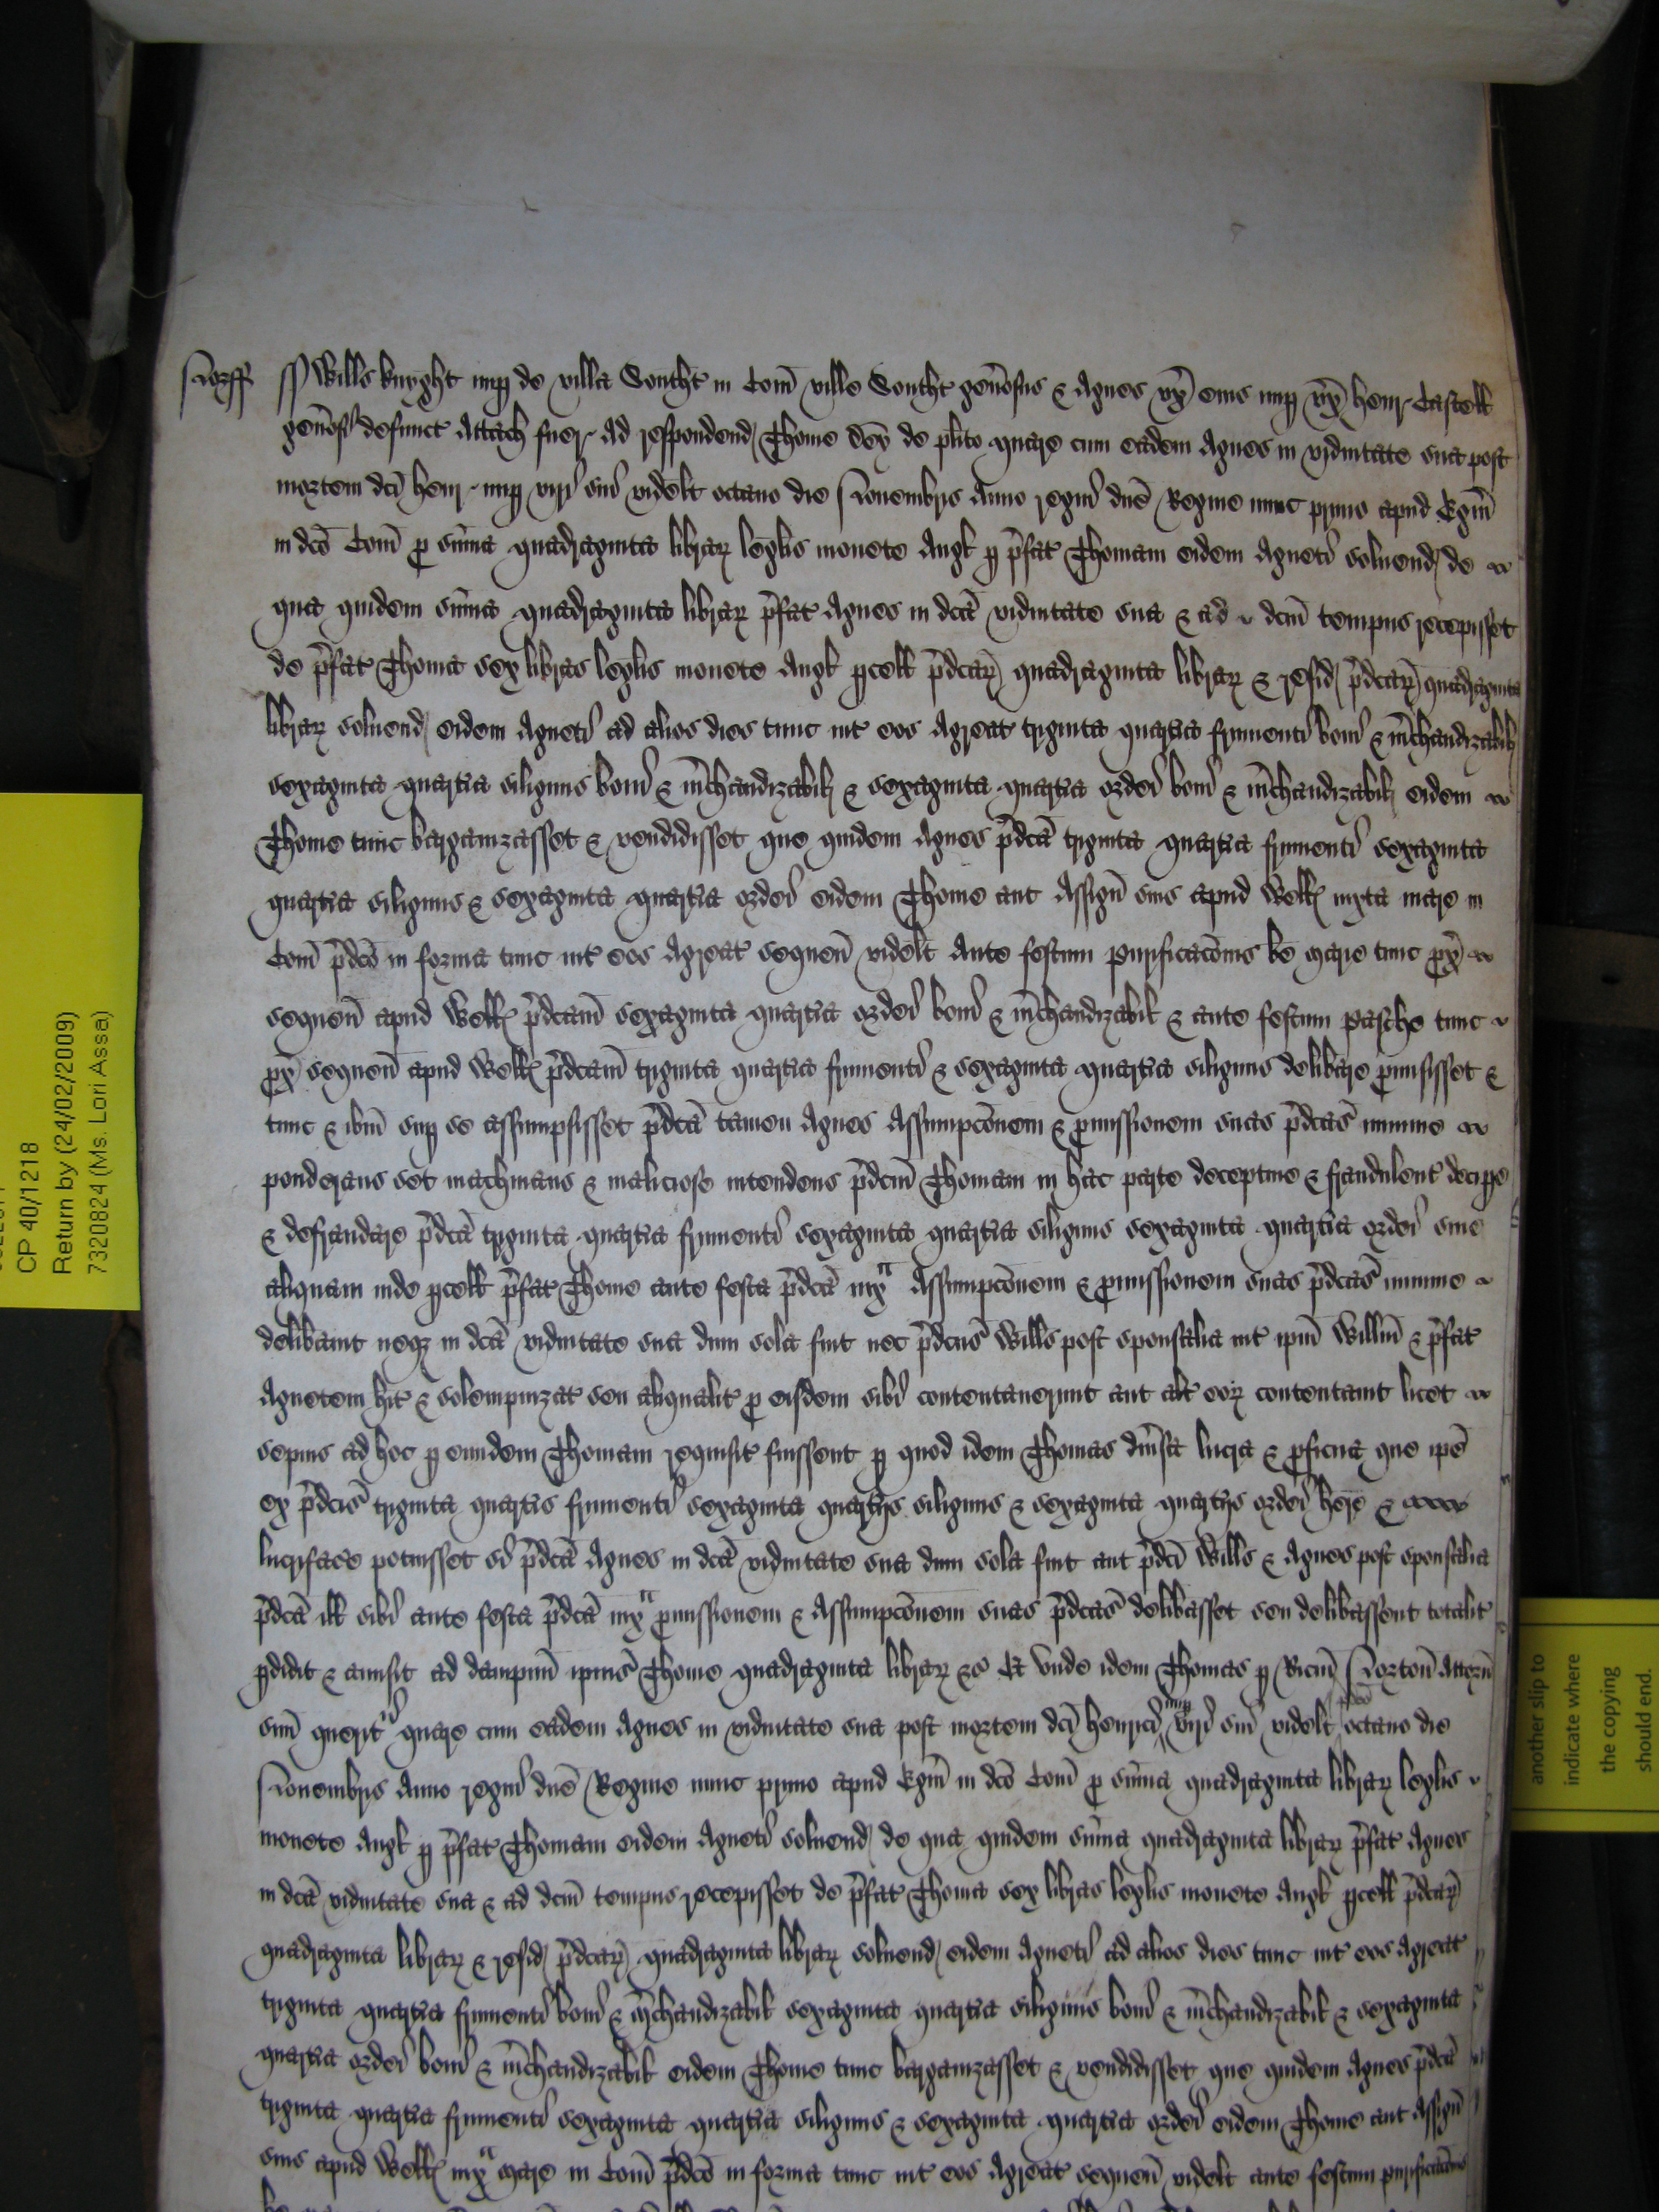 Norff ss Wills Knyght nup de villa Southt in Com ville Southt genosus & Agnes vx eius nup vx Henr Castell
genosi defunct attach fuer ad respondend Thome Dey de plito quare cum eadem Agnes in viduitate sua post
mortem dci Henr nup viri sui videlt octavo die Novembris Anno regni dne Regine nunc primo apud Egm
in dco Com p suma quadraginta librar leglis monete Angl p pfat Thomam eidem Agneti solvend de
qua quidem suma quadraginta librar pfat Agnes in dca viduitate sua & ad dcm tempus recepisset
de pfat Thoma sex libras leglis monete Angl pcell pdcar quadraginta librar & resid pdcar quadraginta
librar solvend eidem Agneti ad alios dies tunc int eos agreat triginta quartia frumenti boni & mchandizabil
sexaginta quartia siliginis boni & mchandizabil & sexaginta quartia ordei boni & mchandizabil eidem
Thome tunc barganizasset & vendidisset que quidem Agnes pdca triginta quartia frumenti sexaginta
quartia siliginis & sexaginta quartia ordei eidem Thome aut Assign suis apud Wells iuxta mare in
Com pdco in forma tunc int eos agreat sequen videlt ante festum Purificacois be marie tunc px
sequen apud Wells pdcam sexaginta quartia ordei boni & mchandizabil & ante festum Pasche tunc
px sequen apud Wells pdcam triginta quartia frumenti & sexaginta quartia siliginis delibare pmisisset &
tunc & ibm sup se assumpsisset pdca tamen Agnes Assumpcoem & pmissionem suas pdcas minime
ponderans set machinans & maliciose intendens pdcm Thomam in hac parte deceptive & fraudulent decipe
& defraudare pdca triginta quartia frumenti sexaginta quartia siliginis sexaginta quartia ordei sive
aliquam inde pcell pfat Thome ante festa pdca iuxa Assumpcoem & pmissionem suas pdcas minime
delibavit neqz in dca viduitate sua dum sola fuit nec pdcus Wills post sponsalia int ipm Willm & pfat
Agnetem hit & solempnizat seu aliqualit p eisdem sibi contentaverunt aut alt eor contentavit licet
sepius ad hoc p eundem Thomam requisit fuissent p quod idem Thomas divsa lucra & pficua que ipe
ex pdcis triginta quartis frumenti sexaginta quartijs siliginis & sexaginta quartijs ordei here &
lucrifacere potuisset si pdca Agnes in dca viduitate sua dum sola fuit aut pdci Wills & Agnes post sponsalia
pdca ill sibi ante festa pdca iuxa pmissionem & Assumpcoem suas pdcas delibasset seu delibassent totalit
pdidit & amisit ad dampnu ipius Thome quadraginta librar &c Et unde idem Thomas p Ricm Norton Attorn
suu querit quare cum eadem Agnes in viduitate sua post mortem dci Henrici nup viri sui videlt pdco octavo die
Novembris Anno regni dne Regine nunc primo apud Egm in dco Com p suma quadraginta librar leglis
monete Angl p pfat Thomam eidem Agneti solvend de qua quidem suma quadraginta librar pfat Agnes
in dca viduitate sua & ad dcm tempus recepisset de pfat Thoma sex libras leglis monete Angl pcell pdcar
quadraginta librar & resid pdcar quadraginta librar solvend eidem Agneti ad alios dies tunc int eos agreat
triginta quartia frumenti boni & mchandizabil sexaginta quartia siliginis boni & mchandizabil & sexaginta
quartia ordei boni & mchandizabil eidem Thome tunc barganizasset & vendidisset que quidem Agnes pdca
triginta quartia frumenti sexaginta quartia siliginis & sexaginta quartia ordei eidem Thome aut Assign
suis apud Wells iuxa mare in Com pdco in forma tunc int eos agreat sequen videlt ante festum purificacois
CP 40/1218
Return by (24/02/2009)
7320824 (Ms. Lori Assa)
another slip to
indicate where
the copying
should end.